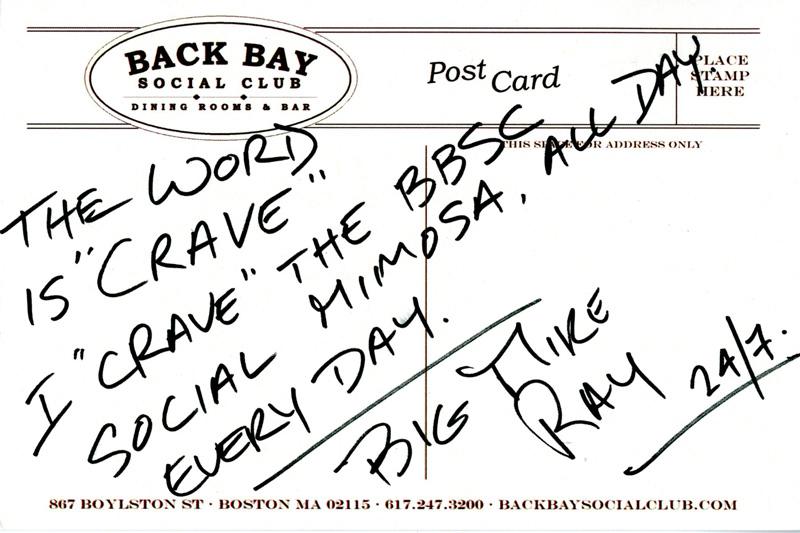 BACK BAY
SOCIAL CLUB
DINING ROOMS & BAR
Post Card
PLACE
STAMP
HERE
THIS SPACE FOR ADDRESS ONLY
THE WORD
IS "CRAVE"
I "CRAVE" THE BBSC
SOCIAL MIMOSA, ALL DAY.
EVERY DAY.
BIG MIKE
RAY 24/7.
867 BOYLSTON ST · BOSTON MA 02115 · 617.247.3200 · BACKBAYSOCIALCLUB.COM